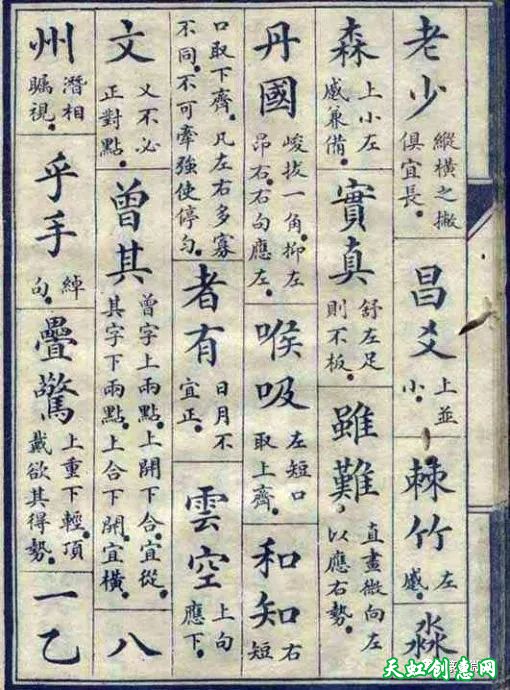 老少 縱橫之撇
俱宜長。
昌爻 上並
小。
棘竹 左
慼。
淼
森 上小左
慼兼備。
實真 舒左足
則不板。
雖難 直畫微向左
以應右勢。
丹國 峻拔一角。抑左
昂右。右向應左。
喉吸 左短口
取上齊。
和知 右
短
口取下齊。凡左右多寡
不同。不可牽強使停勻。
者有 日月不
宜正。
雲空 上向
應下。
文 乂不必
正對點。
曾其 曾字上兩點。上開下合。宜從。
其字下兩點。上合下開。宜橫。
八
州 潛相
矚視。
乎手 綽
勾。
疊驚 上重下輕。頂
戴欲其得勢。
一乙
天虹创意网